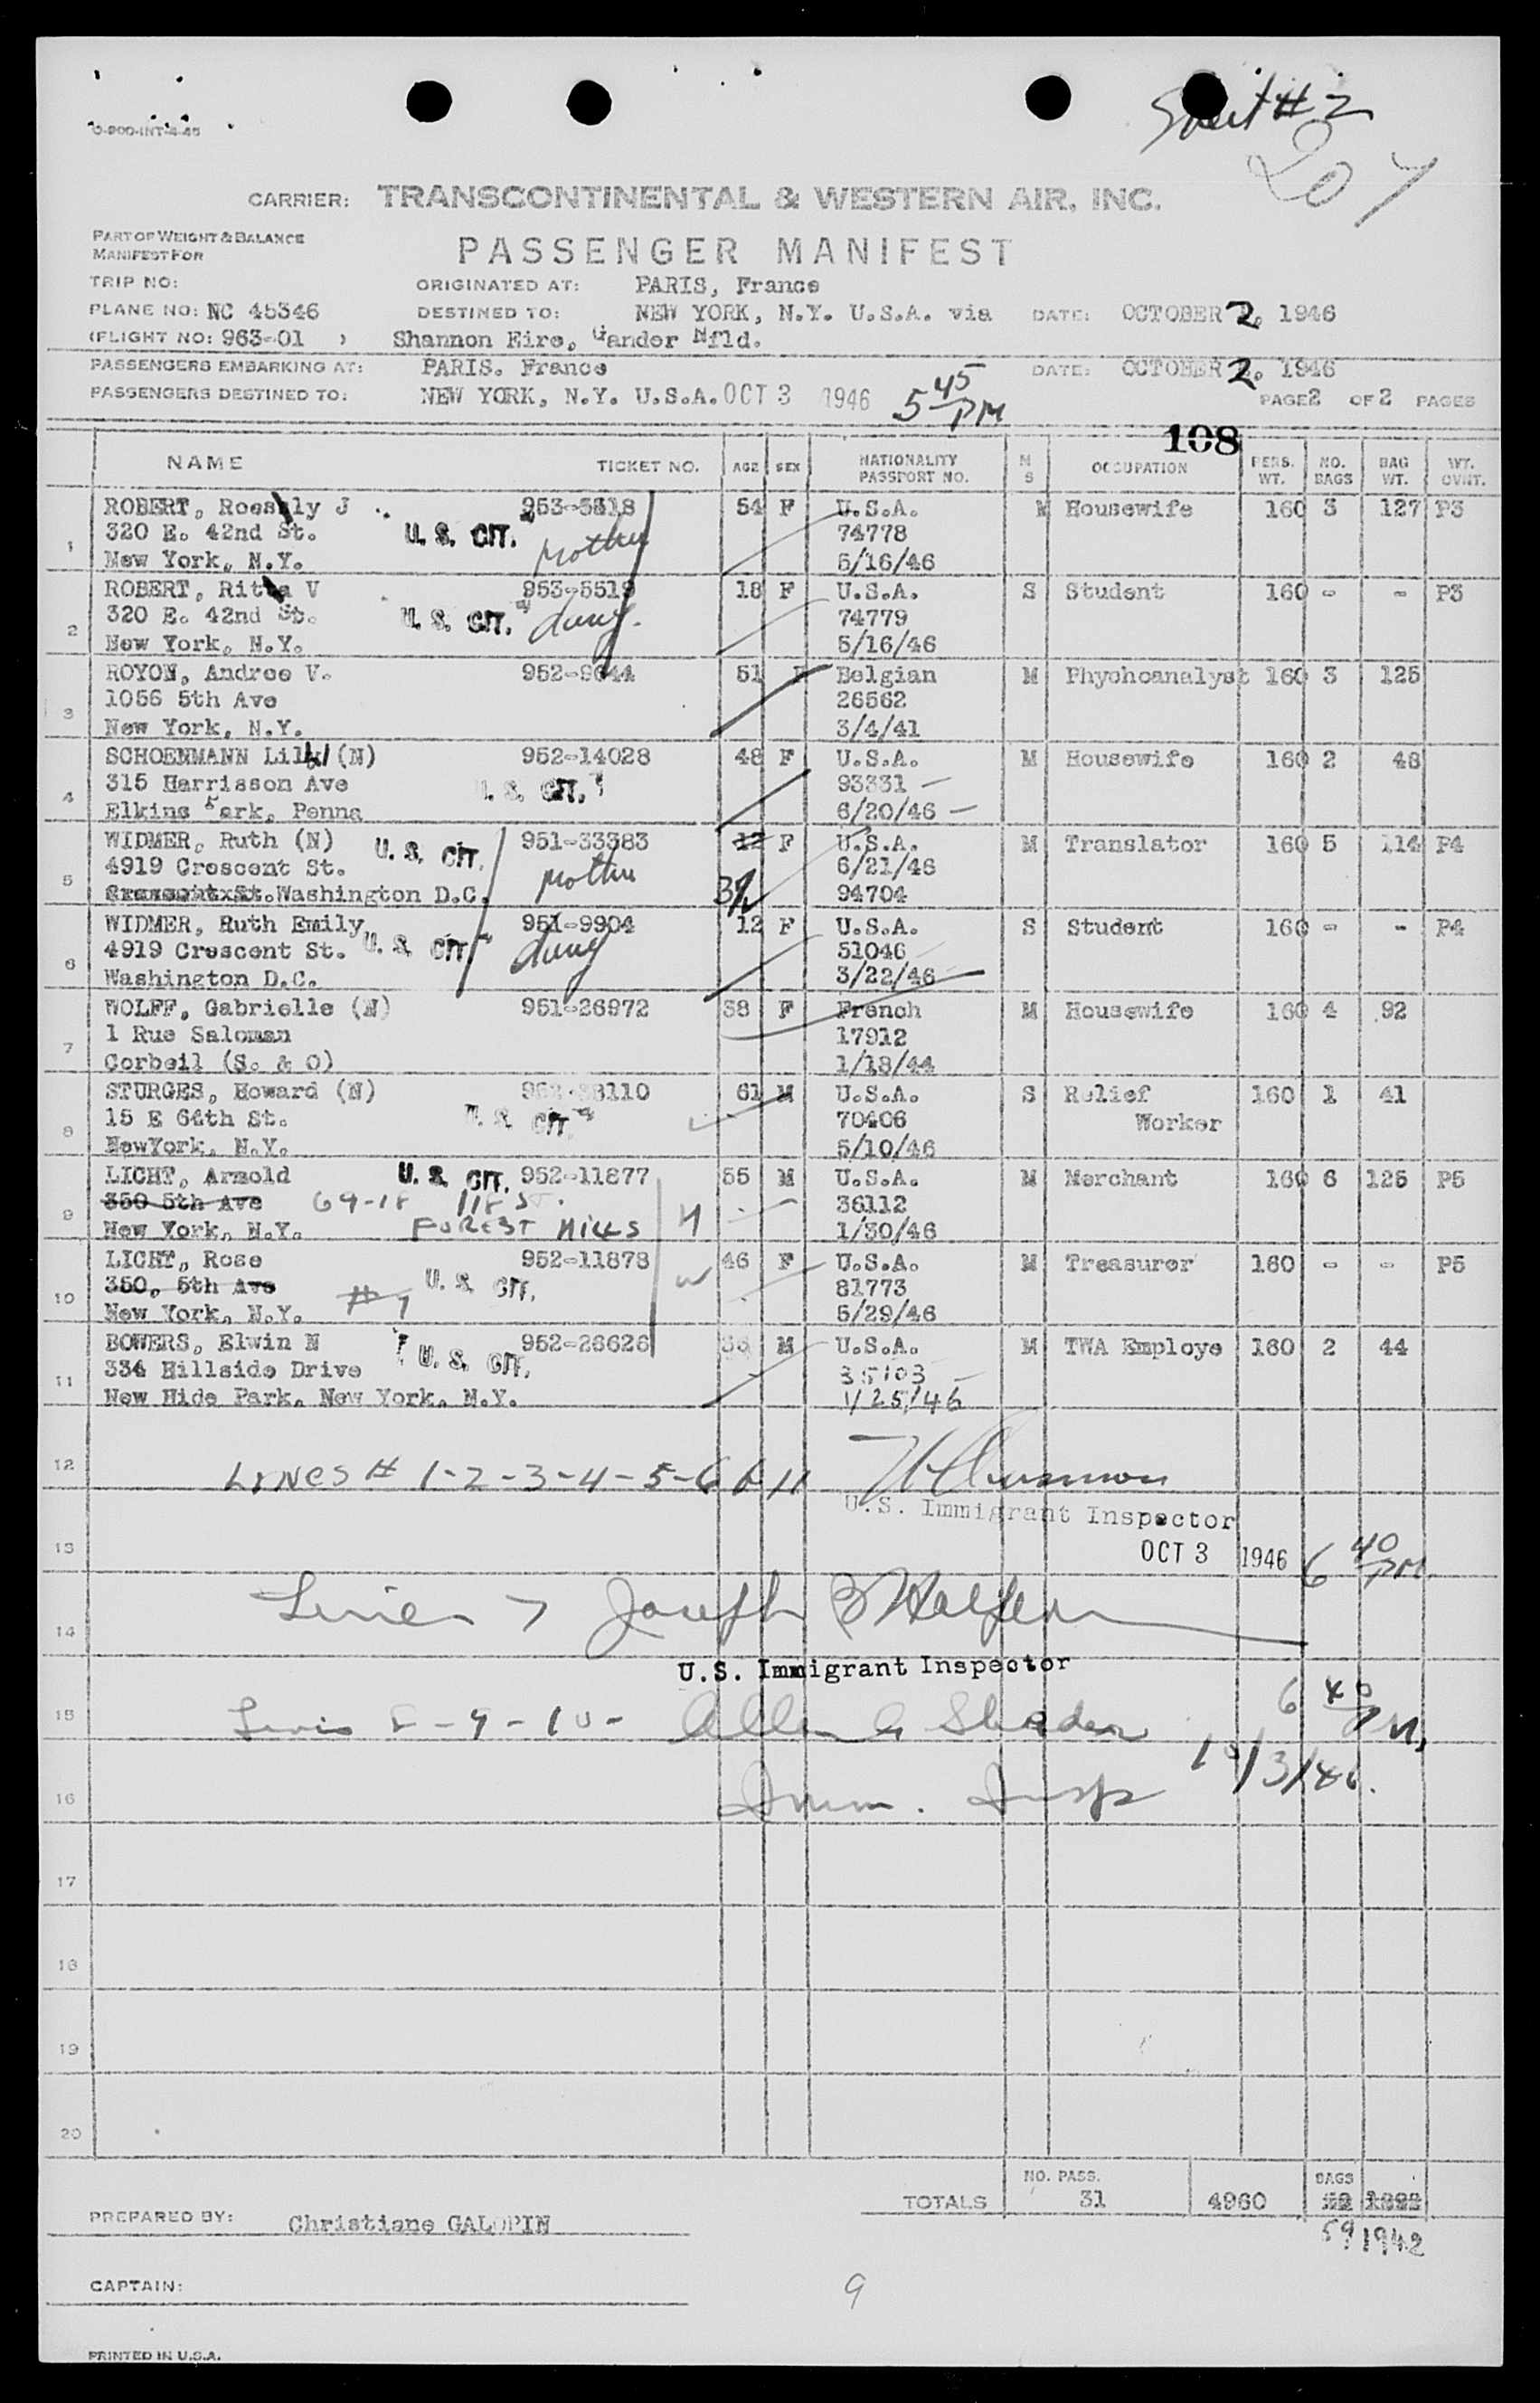 O-900-INT-4-45
Sheet # 2
207
CARRIER: TRANSCONTINENTAL & WESTERN AIR, INC.
PART OF WEIGHT & BALANCE
MANIFEST FOR
PASSENGER MANIFEST
TRIP NO: ORIGINATED AT: PARIS, France
PLANE NO: NC 45346 DESTINED TO: NEW YORK, N.Y. U.S.A. via DATE: OCTOBER 2, 1946
(FLIGHT NO: 963-01 ) Shannon Eire, Gander Nfld.
PASSENGERS EMBARKING AT: PARIS. France DATE: OCTOBER 2, 1946
PASSENGERS DESTINED TO: NEW YORK, N.Y. U.S.A. OCT 3 1946 5 45 PM PAGE 2 OF 2 PAGES
108
NAME TICKET NO. AGE SEX NATIONALITY PASSPORT NO. M S OCCUPATION PERS. WT. NO. BAGS BAG WT. WT. CVNT.
ROBERT, J 953-5518 54 F U.S.A. M Housewife 160 3 127 P3
320 E. 42nd St. U. S. CIT. Mother 74778
1 New York, N.Y. 5/16/46
ROBERT, V 953-5519 18 F U.S.A. S Student 160 - - P3
320 E. 42nd St. U. S. CIT. daug. 74779
2 New York, N.Y. 5/16/46
ROYON, Andree V. 952-9644 51 F Belgian M Phychoanalyst 160 3 125
1056 5th Ave 26562
3 New York, N.Y. 3/4/41
SCHOENMANN (N) 952-14028 48 F U.S.A. M Housewife 160 2 48
315 Harrisson Ave U. S. CIT. 93331 -
4 Elkins Park, Penna 6/20/46 -
WIDMER, Ruth (N) U. S. CIT. 951-33383 12 F U.S.A. M Translator 160 5 114 P4
4919 Crescent St. Mother 6/21/46
5 Crescent St. Washington D.C. 94704
WIDMER, Ruth Emily 951-9904 12 F U.S.A. S Student 160 - - P4
4919 Crescent St. U. S. CIT. daug 51046
6 Washington D.C. 3/22/46
WOLFF, Gabrielle (N) 951-26972 38 F French M Housewife 160 4 92
1 Rue Saloman 17912
7 Corbeil (S. & O) 1/18/44
STURGES, Howard (N) 61 M U.S.A. S Relief 160 1 41
15 E 64th St. U. S. CIT. 70406 Worker
8 NewYork, N.Y. 5/10/46
LICHT, Arnold U. S. CIT. 952-11877 55 M U.S.A. M Merchant 160 6 125 P5
350 5th Ave 69-18 118 St. 36112
9 New York, N.Y. FOREST HILLS H 1/30/46
LICHT, Rose 952-11878 46 F U.S.A. M Treasurer 160 - - P5
350, 5th Ave U. S. CIT. W 81773
10 New York, N.Y. 5/29/46
BOWERS, Elwin N 952-26626 36 M U.S.A. M TWA Employe 160 2 44
334 Hillside Drive U. S. CIT. 35103 -
11 New Hide Park, New York, N.Y. 1/25/46
12 LINES # 1-2-3-4-5-6 & 11
U.S. Immigrant Inspector
13 OCT 3 1946 6 40 PM.
14 Line 7 Joseph B Halfern
U.S. Immigrant Inspector
15 Lines 8-9-10- Allen G 6 40 PM,
16 Imm. Insp 10/3/46.
17
18
19
20
TOTALS NO. PASS. 31 4960 BAGS
PREPARED BY: Christiane GALOPIN
59 1942
CAPTAIN: 9
PRINTED IN U.S.A.